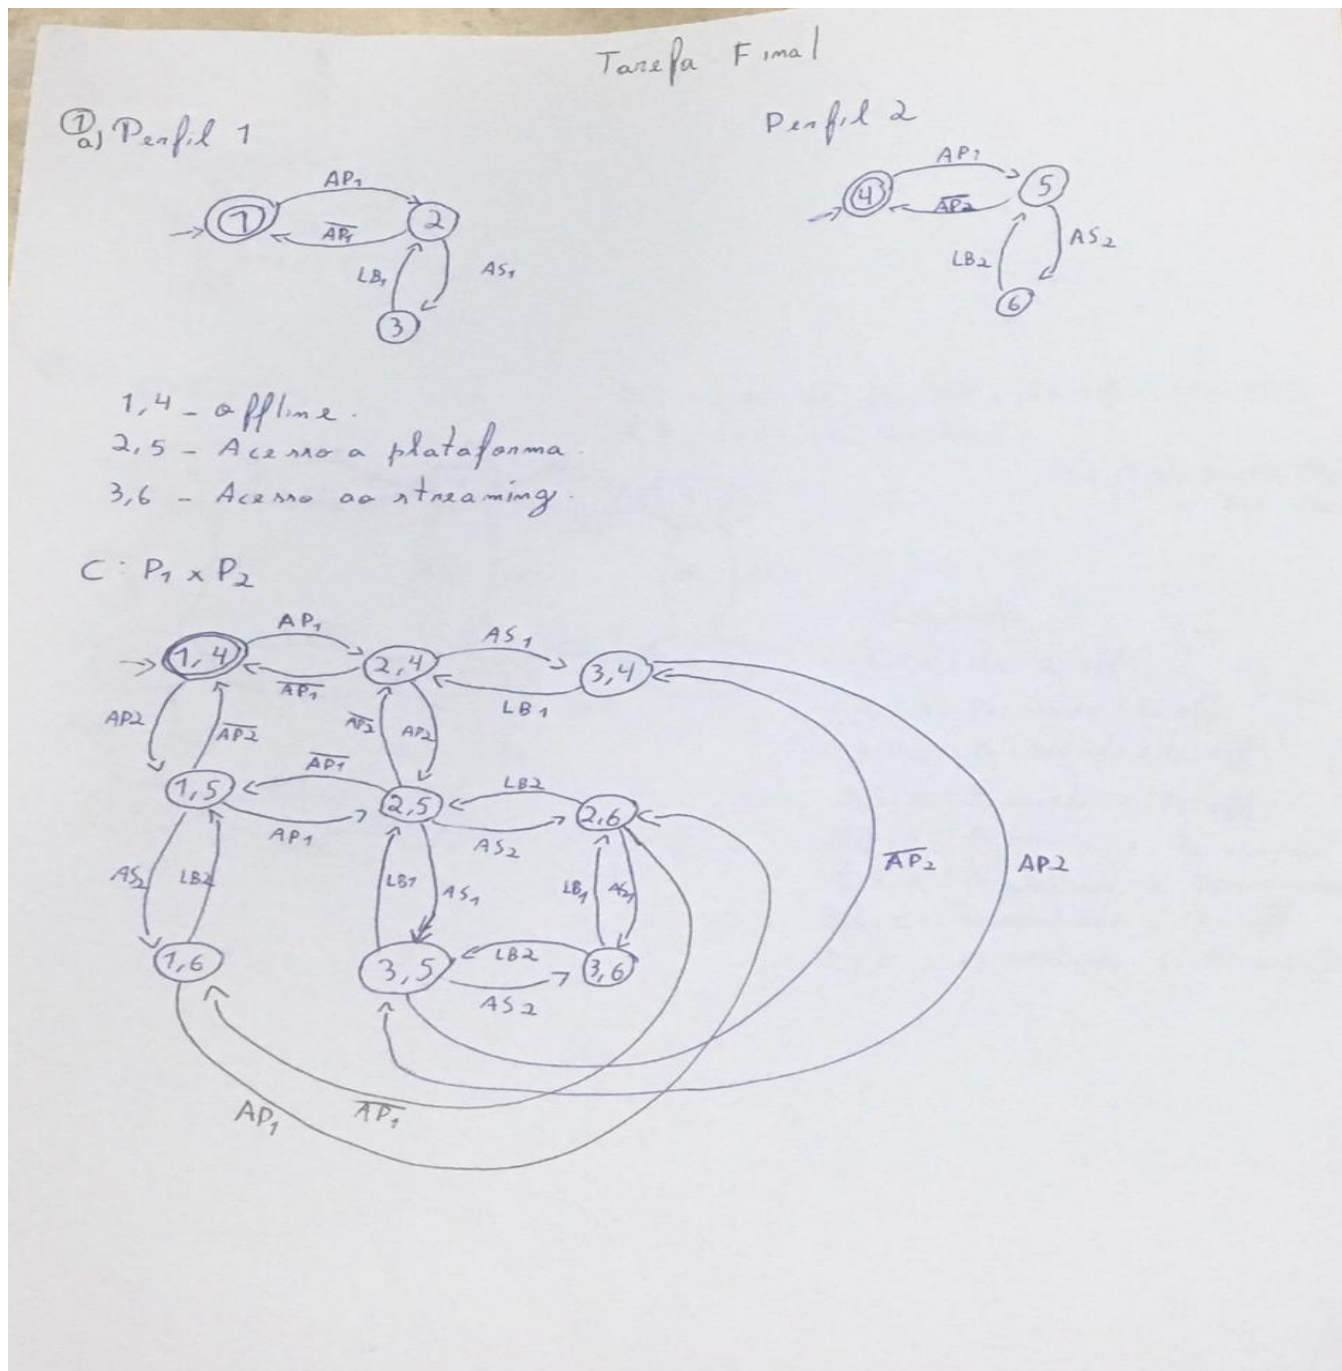 Tarefa Final
① a) Perfil 1
Perfil 2
AP₁
1
2
A̅P̅₁
LB₁
AS₁
3
AP1
4
5
A̅P̅2
LB2
AS2
6
1,4 - offline.
2,5 - Acesso a plataforma.
3,6 - Acesso ao streaming.
C: P₁ x P₂
AP₁
AS₁
1,4
2,4
3,4
A̅P̅₁
LB₁
AP2
A̅P̅2
A̅P̅2
AP2
A̅P̅1
LB2
1,5
2,5
2,6
AP1
AS2
A̅P̅₂
AP2
AS2
LB2
LB1
AS1
LB1
AS1
1,6
3,5
LB2
3,6
AS2
AP₁
A̅P̅₁